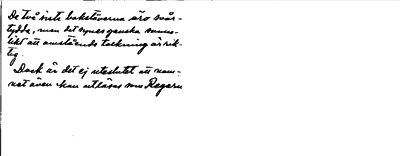 De två sista bokstäverna äro svår-
tydda, men det synes ganska sanno-
likt att ovanstående tolkning är rik-
tig.
Dock är det ej uteslutet att nam-
net även kan utläsas som Ragaru